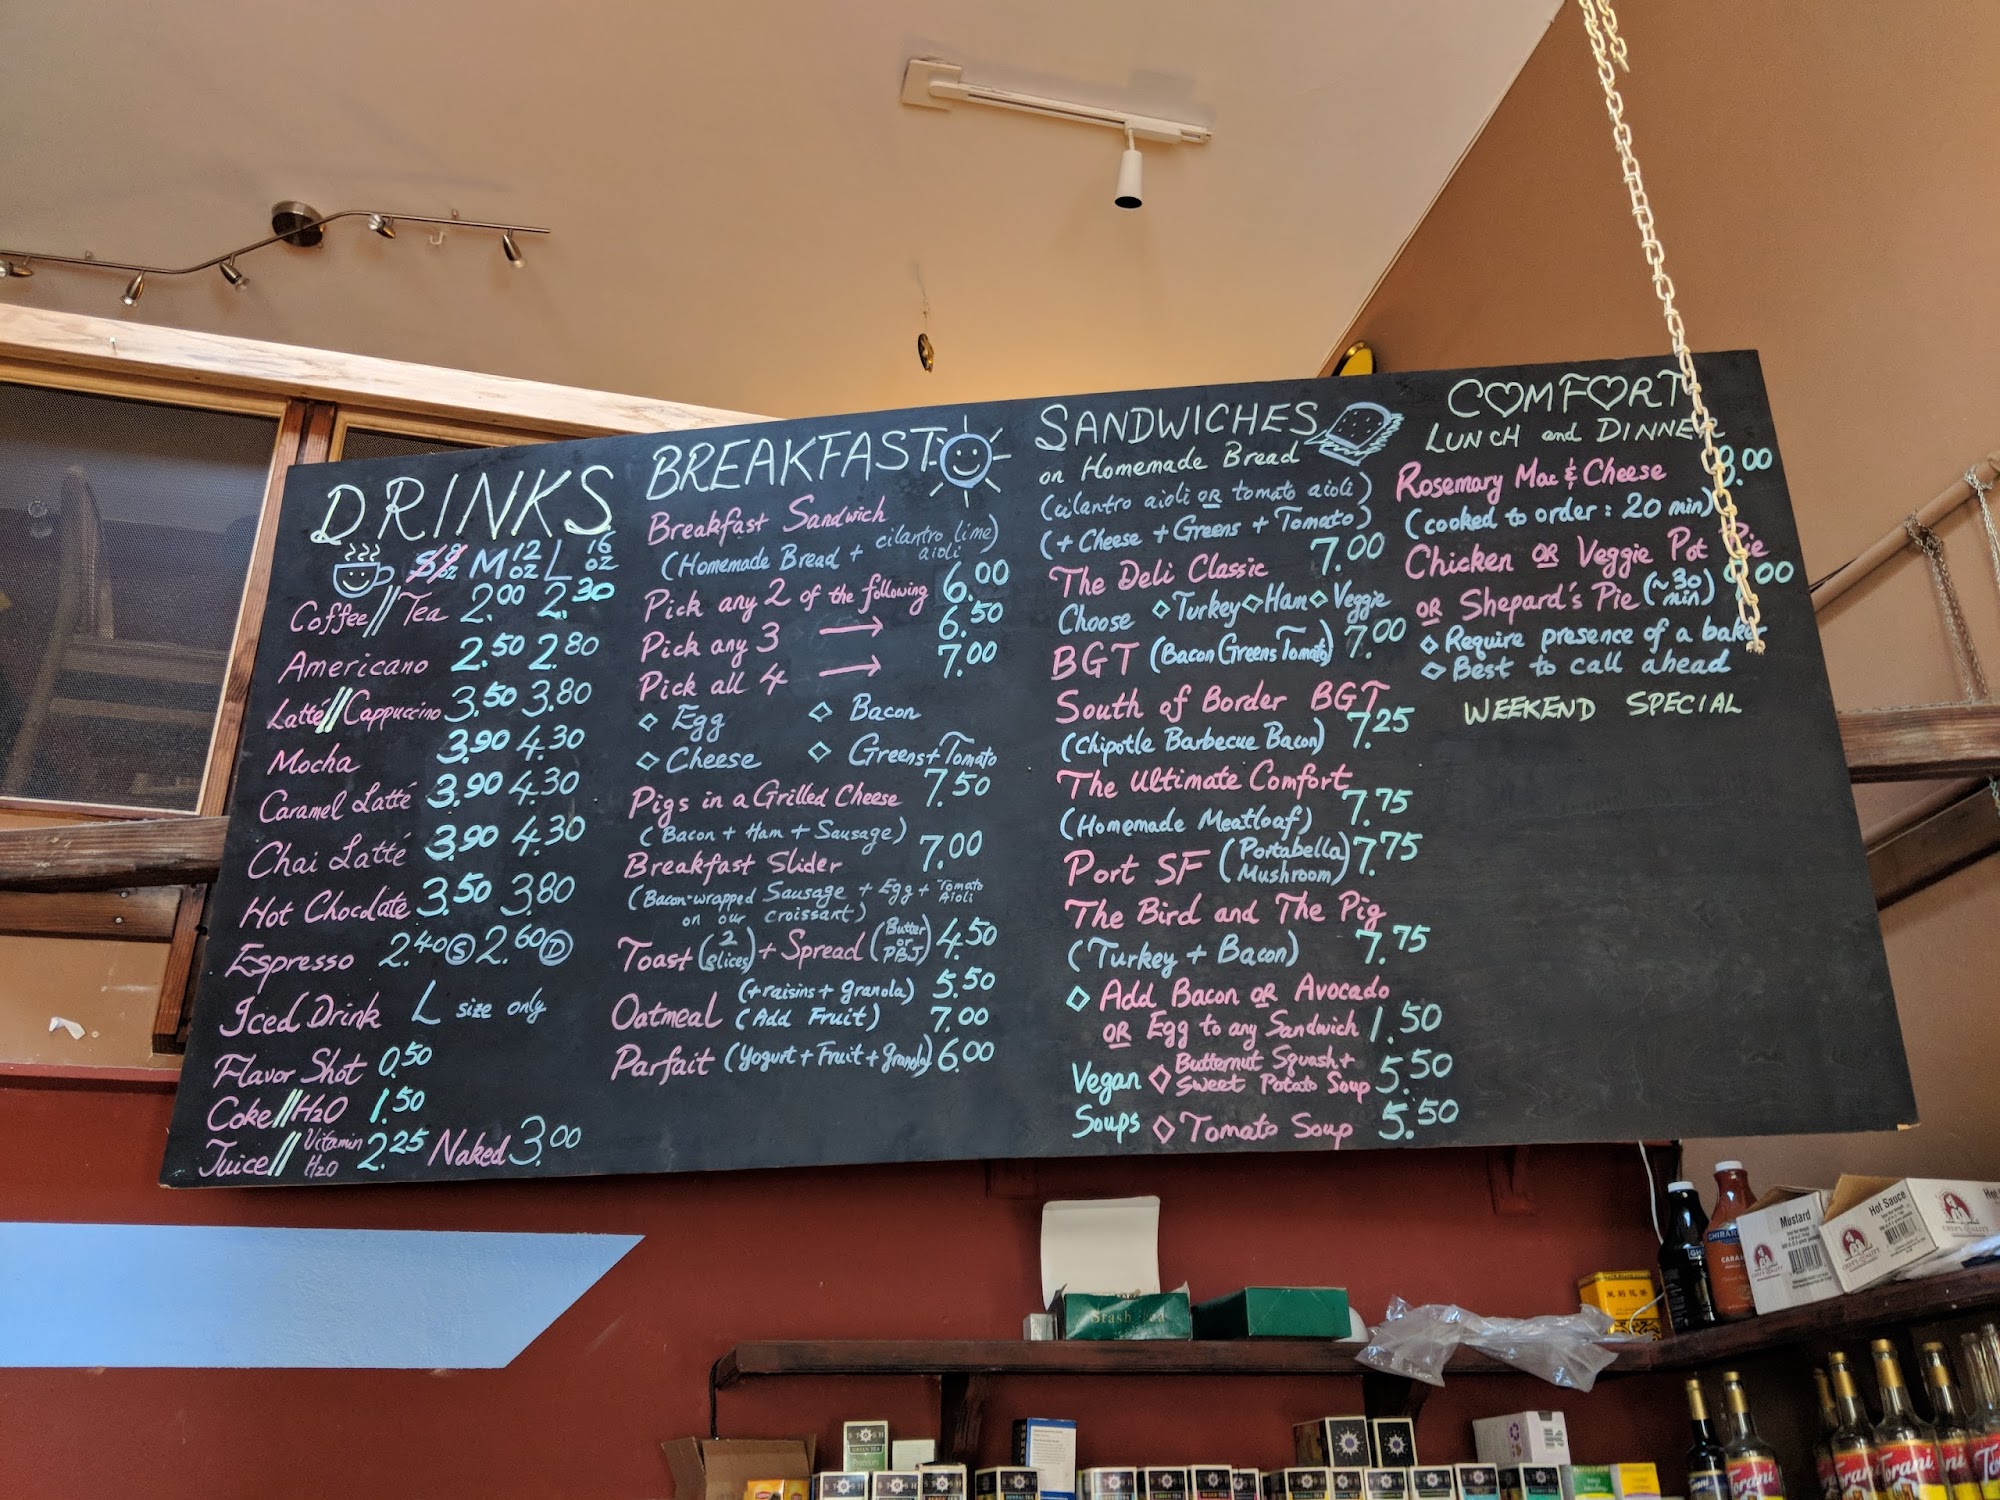 DRINKS
S 8 oz M 12 oz L 16 oz
Coffee // Tea 2.00 2.30
Americano 2.50 2.80
Latté // Cappuccino 3.50 3.80
Mocha 3.90 4.30
Caramel Latté 3.90 4.30
Chai Latté 3.90 4.30
Hot Choclate 3.50 3.80
Espresso 2.40 S 2.60 D
Iced Drink L size only
Flavor Shot 0.50
Coke // H2O 1.50
Juice // Vitamin H2O 2.25 Naked 3.00
BREAKFAST
Breakfast Sandwich
(Homemade Bread + cilantro lime aioli)
Pick any 2 of the following 6.00
Pick any 3 → 6.50
Pick all 4 → 7.00
◇ Egg ◇ Bacon
◇ Cheese ◇ Greens + Tomato
Pigs in a Grilled Cheese 7.50
(Bacon + Ham + Sausage)
Breakfast Slider 7.00
(Bacon-wrapped Sausage + Egg + Tomato Aioli
on our croissant)
Toast (2 slices) + Spread (Butter or PBJ) 4.50
Oatmeal (+raisins + granola) 5.50
(Add Fruit) 7.00
Parfait (Yogurt + Fruit + granola) 6.00
SANDWICHES
on Homemade Bread
(cilantro aioli OR tomato aioli)
(+ Cheese + Greens + Tomato)
The Deli Classic 7.00
Choose ◇ Turkey ◇ Ham ◇ Veggie
BGT (Bacon Greens Tomato) 7.00
South of Border BGT
(Chipotle Barbecue Bacon) 7.25
The Ultimate Comfort
(Homemade Meatloaf) 7.75
Port SF (Portabella Mushroom) 7.75
The Bird and The Pig
(Turkey + Bacon) 7.75
◇ Add Bacon OR Avocado
OR Egg to any Sandwich 1.50
Vegan Soups
◇ Butternut Squash +
Sweet Potato Soup 5.50
◇ Tomato Soup 5.50
COMFORT
LUNCH and DINNER
Rosemary Mac & Cheese 8.00
(cooked to order: 20 min)
Chicken OR Veggie Pot Pie
OR Shepard's Pie (~30 min) 9.00
◇ Require presence of a baker
◇ Best to call ahead
WEEKEND SPECIAL
Mustard
Hot Sauce
Stash Tea
STASH
GREEN TEA
Premium
Torani
Torani